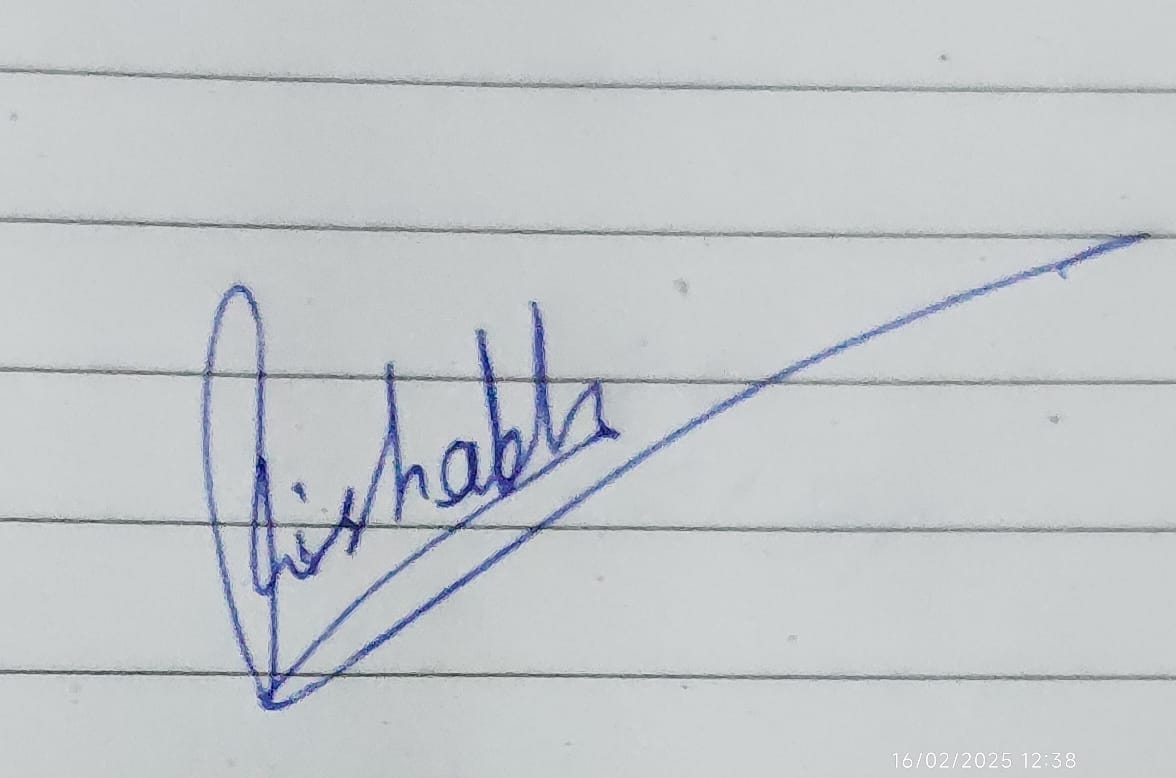 Rishabh
16/02/2025 12:38